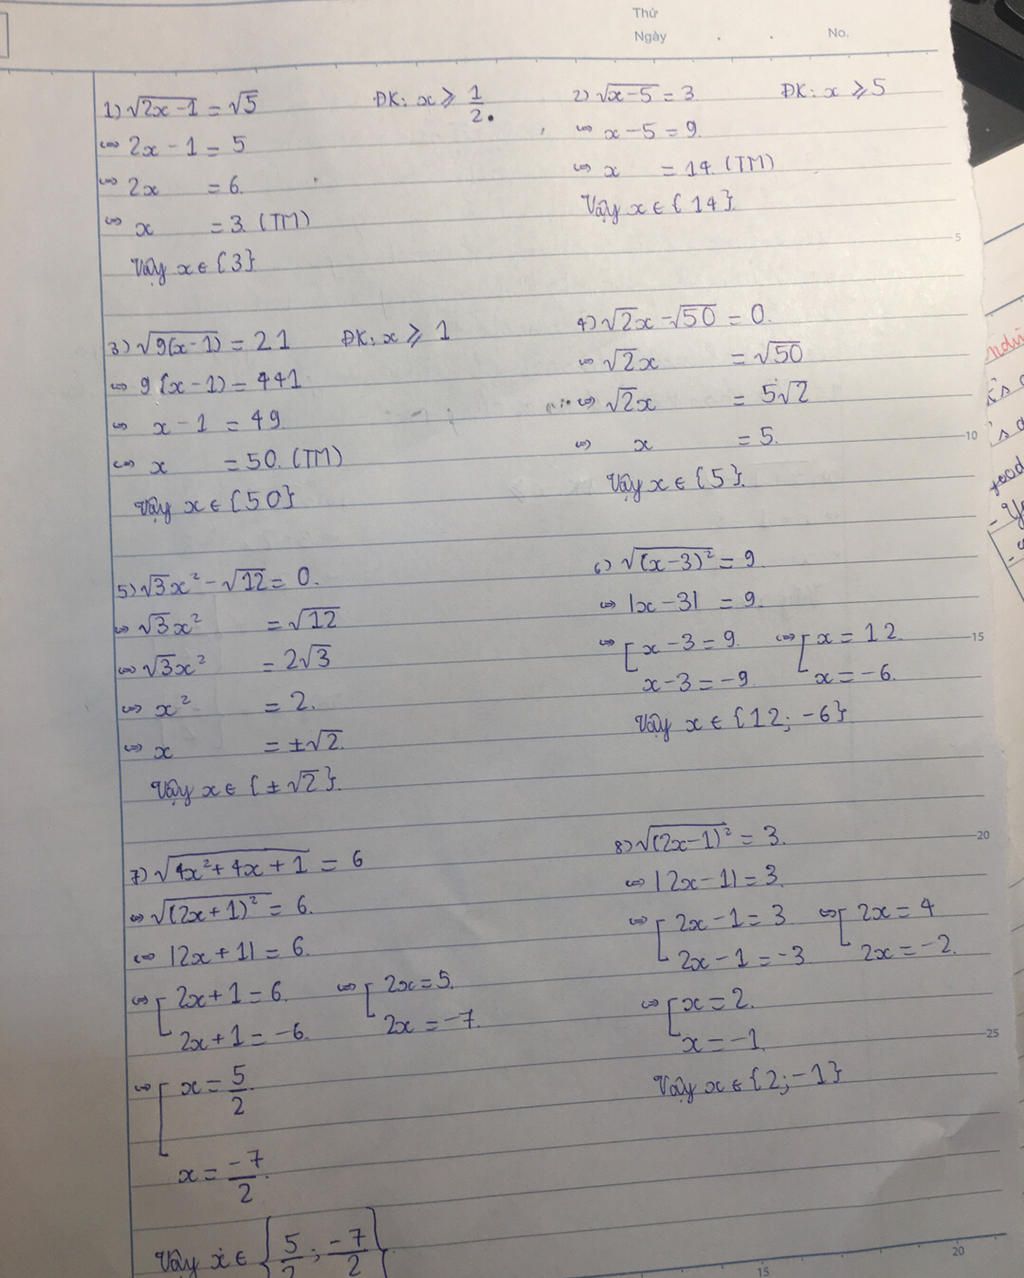 Thứ
Ngày . . No.
1) √(2x-1) = √5 ĐK: x ⩾ 1/2.
⇔ 2x - 1 = 5
⇔ 2x = 6.
⇔ x = 3. (TM)
Vậy x ∈ {3}
2) √(x-5) = 3 ĐK: x ⩾ 5
⇔ x - 5 = 9.
⇔ x = 14. (TM)
Vậy x ∈ {14}.
5
3) √(9(x-1)) = 21 ĐK: x ⩾ 1
⇔ 9(x-1) = 441
⇔ x - 1 = 49.
⇔ x = 50. (TM)
Vậy x ∈ {50}
4) √2x - √50 = 0.
⇔ √2x = √50
⇔ √2x = 5√2
⇔ x = 5.
Vậy x ∈ {5}.
10
5) √3x² - √12 = 0.
⇔ √3x² = √12
⇔ √3x² = 2√3
⇔ x² = 2.
⇔ x = ±√2.
Vậy x ∈ {±√2}.
6) √((x-3)²) = 9
⇔ |x-3| = 9.
⇔ [ x - 3 = 9. ⇔ [ x = 12
x - 3 = -9. x = -6.
Vậy x ∈ {12; -6}
15
7) √(4x² + 4x + 1) = 6
⇔ √((2x+1)²) = 6.
⇔ |2x+1| = 6.
⇔ [ 2x + 1 = 6. ⇔ [ 2x = 5.
2x + 1 = -6. 2x = -7.
⇔ [ x = 5/2.
x = -7/2.
Vậy x ∈ {5/2; -7/2}.
8) √((2x-1)²) = 3.
⇔ |2x-1| = 3.
⇔ [ 2x - 1 = 3 ⇔ [ 2x = 4
2x - 1 = -3. 2x = -2.
⇔ [ x = 2.
x = -1.
Vậy x ∈ {2; -1}
20
25
15
20
good